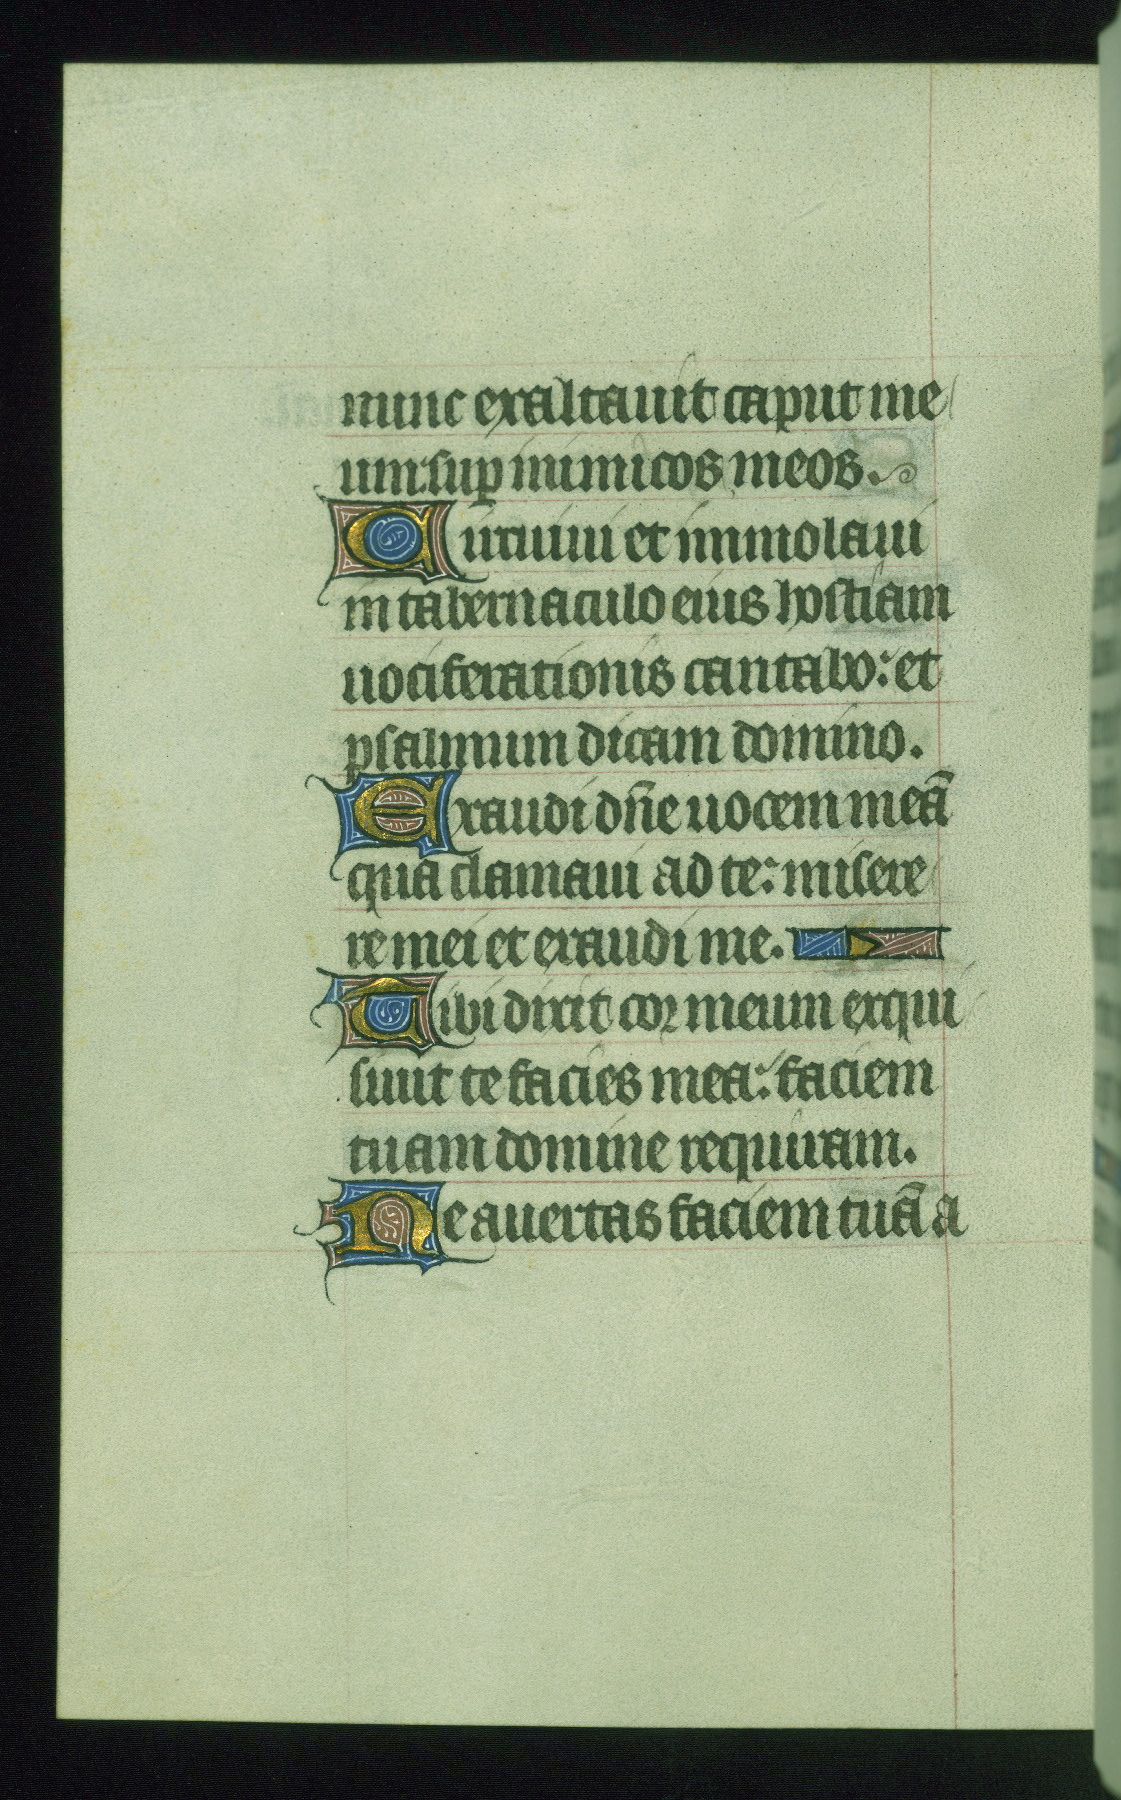 nunc exaltauit caput me
um: sup inimicos meos.
Circuiui et immolaui
in tabernaculo eius hostiam
uociferationis cantabo: et
psalmum dicam domino.
Exaudi dñe uocem meā
qua clamaui ad te: misere
re mei et exaudi me.
Tibi dixit cor meum exqui
siuit te facies mea: faciem
tuam domine requiram.
Ne auertas faciem tuā a